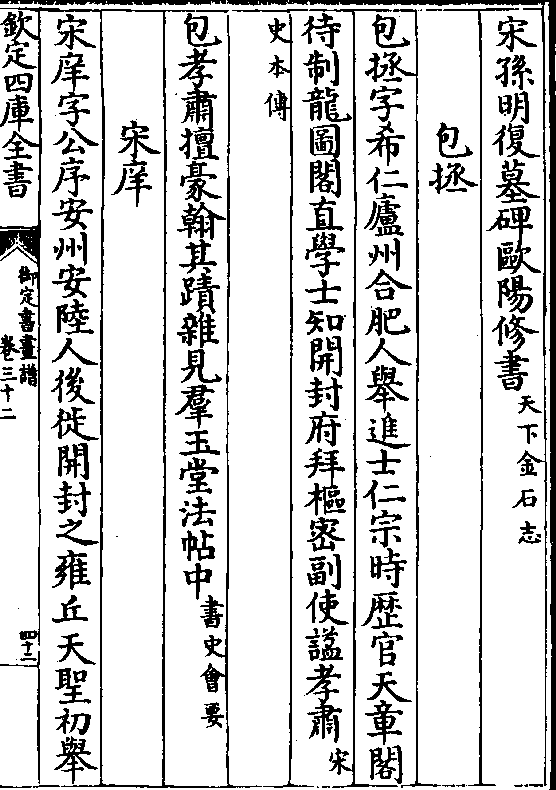 宋孫明復墓碑歐陽修書天下金石志
包拯
包拯字希仁廬州合肥人舉進士仁宗時歴官天章閣
待制龍圖閣直學士知開封府拜樞密副使諡孝肅宋
史本傳
包孝肅擅豪翰其蹟雜見羣玉堂法帖中書史會要
宋庠
宋庠字公序安州安陸人後徙開封之雍丘天聖初舉
欽定四庫全書
御定書畫譜
卷三十二
四十二